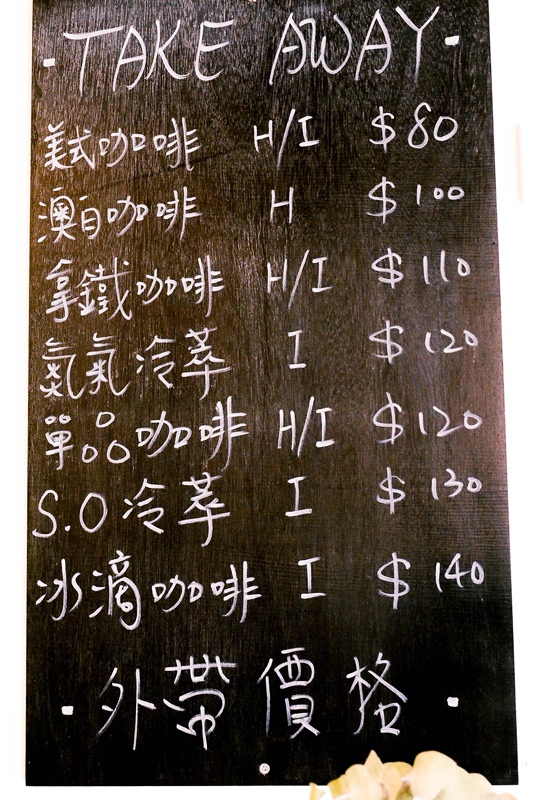 ·TAKE AWAY·
美式咖啡 H/I $80
澳白咖啡 H $100
拿鐵咖啡 H/I $110
氮氣冷萃 I $120
單品咖啡 H/I $120
S.O冷萃 I $130
冰滴咖啡 I $140
·外帶價格·